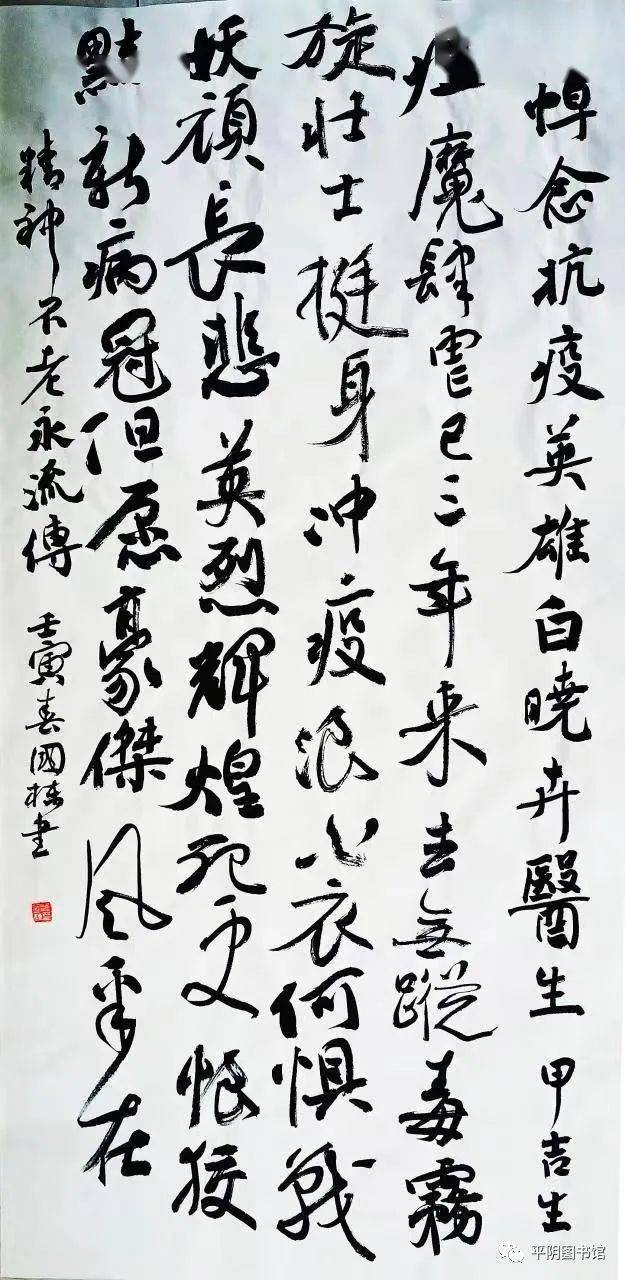 悼念抗疫英雄白曉卉醫生 甲吉生
魔肆虐已三年来去無蹤毒霧
旋壮士挺身冲疫浪衣何惧戰
妖頑長悲英烈輝煌死更恨狡
黠新病冠但愿豪傑風采在
精神不老永流傳 壬寅春國棟書
平阴图书馆